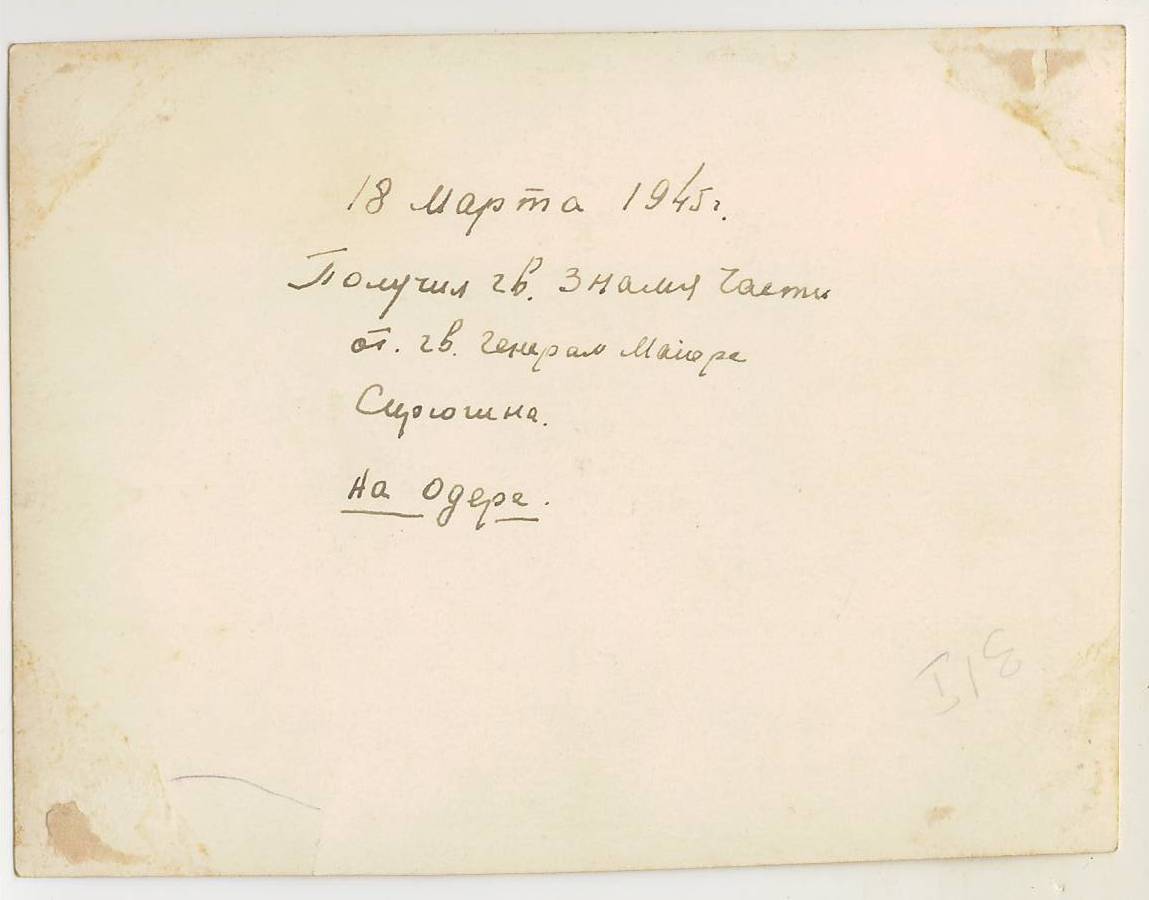 18 Марта 1945г.
Получил гв. Знамя Части
от. гв. Генерал Маиора
Сирюгина.
на Одере.